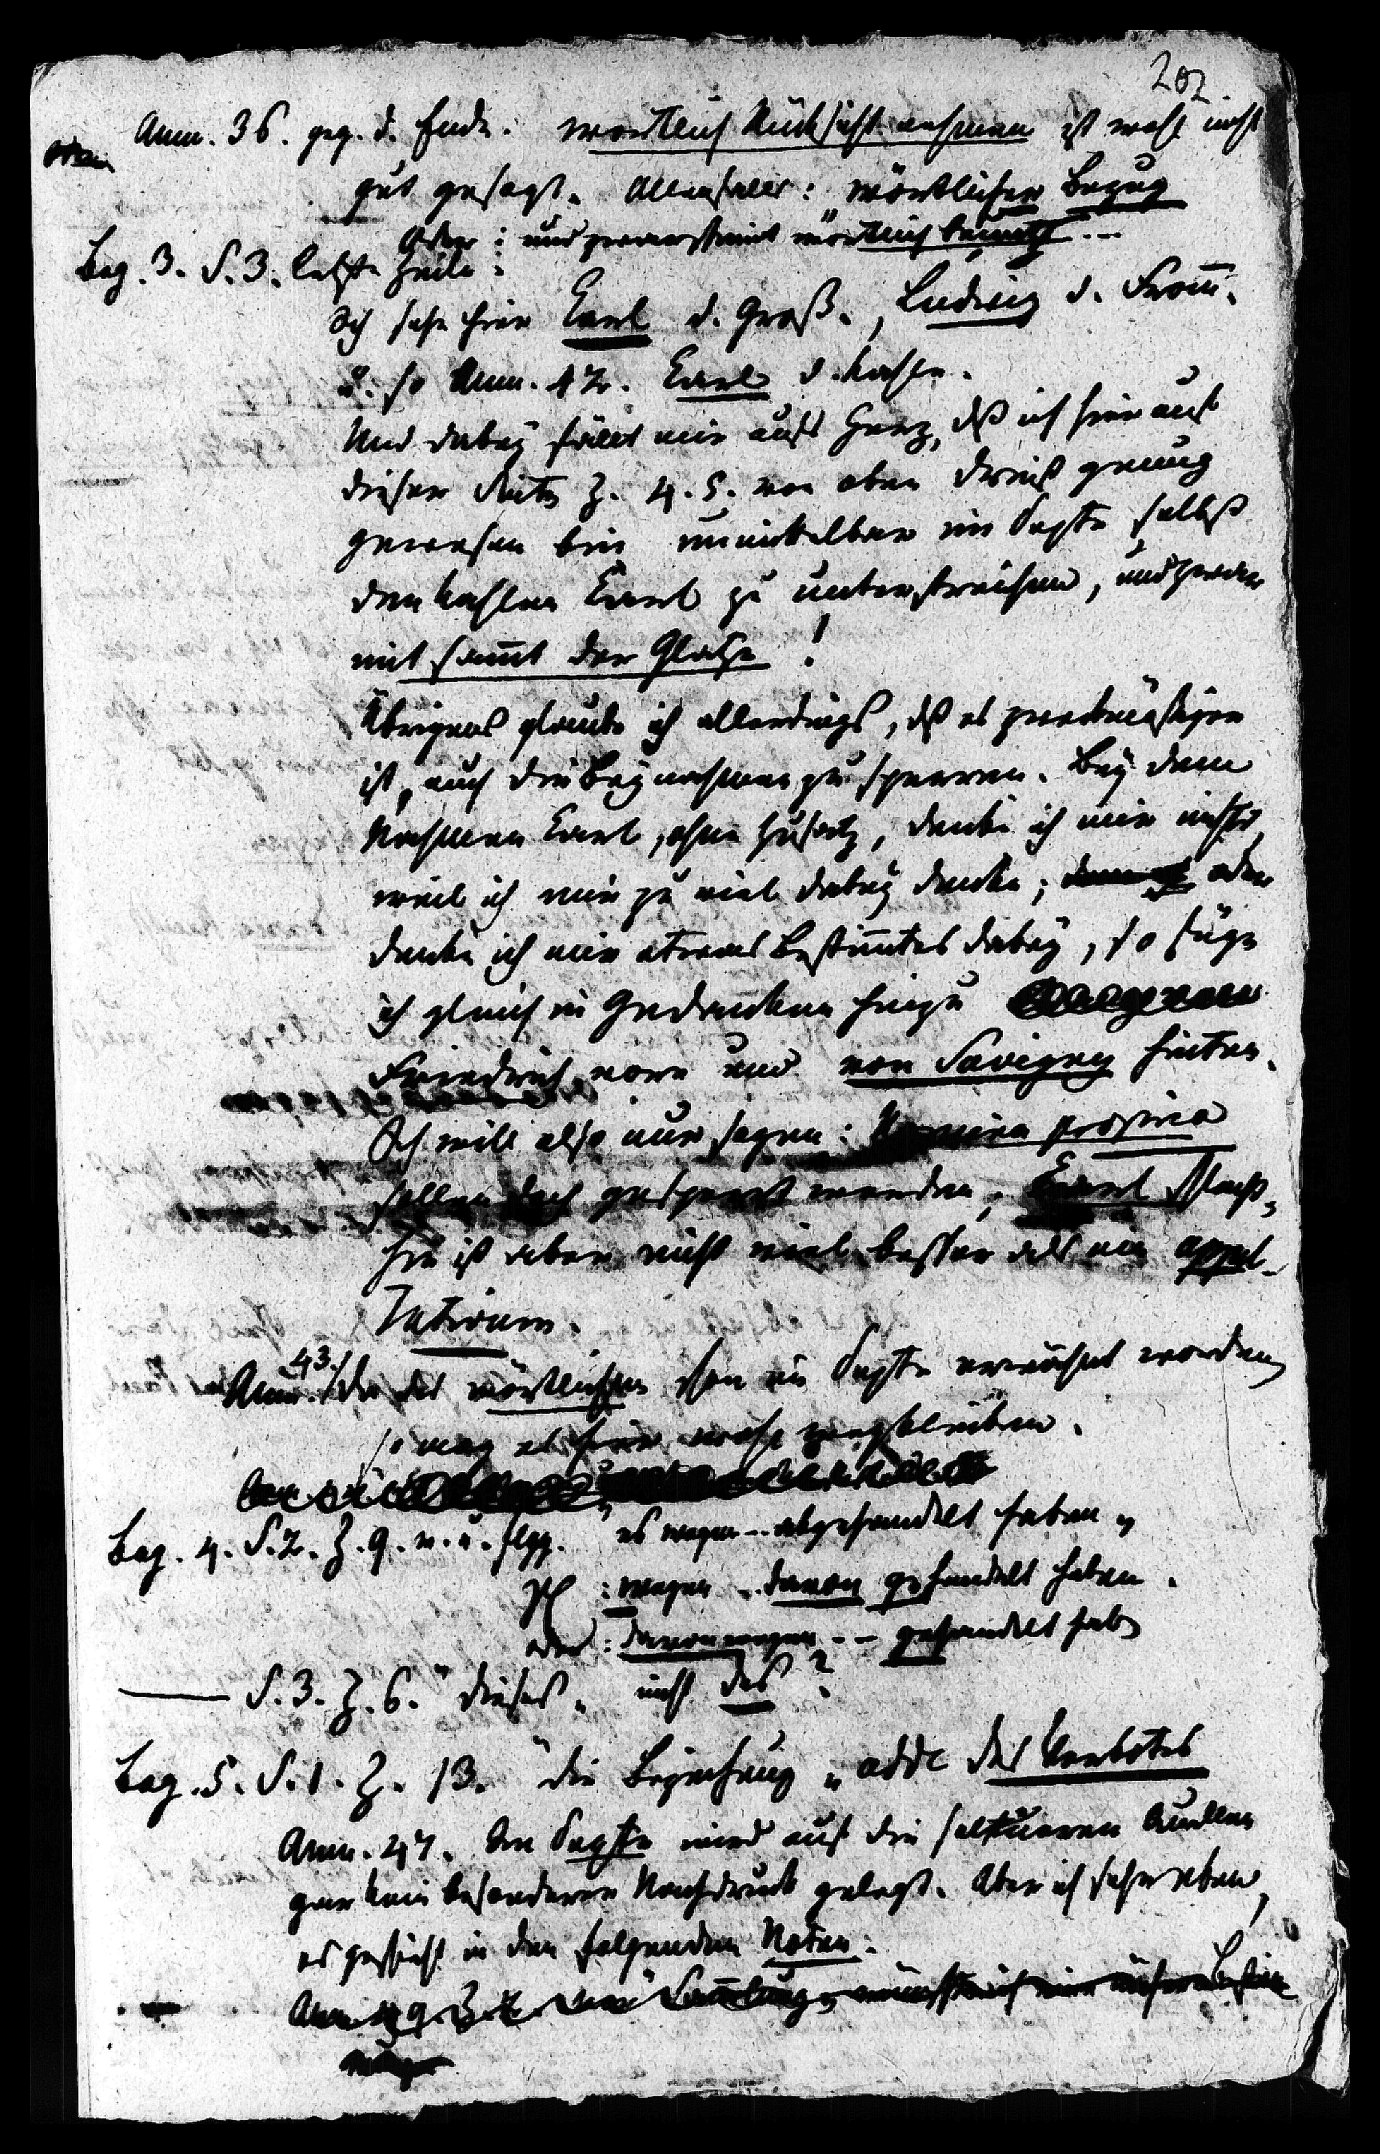 202
Anm. 36. geg. d. Ende. wörtlich Rücksicht nehmen ist wohl nicht
gut gesagt. Allenfalls: wörtlicher Bezug
oder: und zwar meist wörtlich benutzt ---
Bog. 3. S. 3. letzte Zeile:
Ich sehe hier Carl d. Groß., Ludwig d. From̄.
u. so Anm. 42. Carl d. Kahle.
Und dabey fällt mir aufs Herz, dß ich hier auf
dieser Seite Z. 4. 5. von oben dreist genug
gewesen bin unmittelbar im Texte selbst
den kahlen Carl zu unterstreichen, und zwar
mit sam̄t der Glatze!
Übrigens glaube ich allerdings, dß es zweckmäßiger
ist, auch die Beynahmen zu sperren. Bey dem
Nahmen Carl, ohne Zusatz, denke ich mir nichts,
weil ich mir zu viel dabey denke; oder
denke ich mir etwas Bestim̄tes dabey, so füge
ich gleich in Gedanken hinzu
Friedrich vorn und von Savigny hinten.
Ich will also nur sagen: Nomina propria
sollen doch gesperrt werden, Carl
hin ist aber nicht viel besser als ein appel-
lativum.
Anm. 43. Da des wörtlichen schon im Texte erwähnt worden,
so mag es hier wohl wegbleiben.
Bog. 4. S. 2. Z. 9. v. u. flgg. "es mögen -- abgehandelt haben"
: mögen -- davon gehandelt haben.
oder: davon mögen -- gehandelt hab
S. 3. Z. 6. "dieses" nicht das?
Bog. 5. S. 1. Z. 13. "die Beziehung" adde des Verbotes
Anm. 47. Im Texte wird auf die seltneren Quellen
gar kein besonderer Nachdruck gelegt. Aber ich sehe eben,
es geschieht in den folgenden Noten.